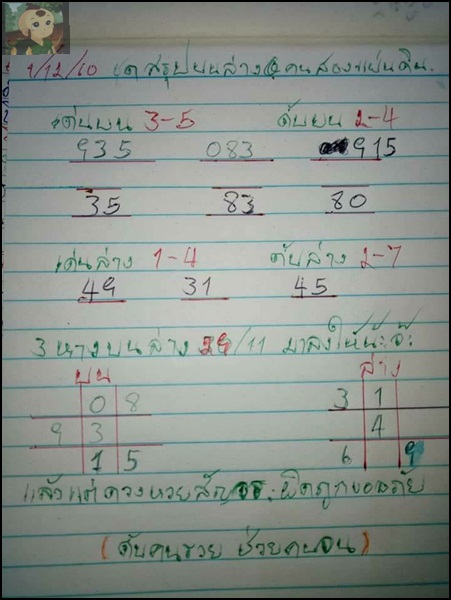 1/12/60 สรุปบนล่าง
เด่นบน 3-5 ดับบน 2-4
935 083 915
35 83 80
เด่นล่าง 1-4 ดับล่าง 2-7
49 31 45
3 หางบนล่าง /11 มาลงให้นะจ๊ะ
บน ล่าง
0 8 3 1
9 3 4
1 5 6 9
แล้วแต่ดวงหวยสัญจร ผิดถูกขออภัย
(ดับคนรวย ช่วยคนจน)